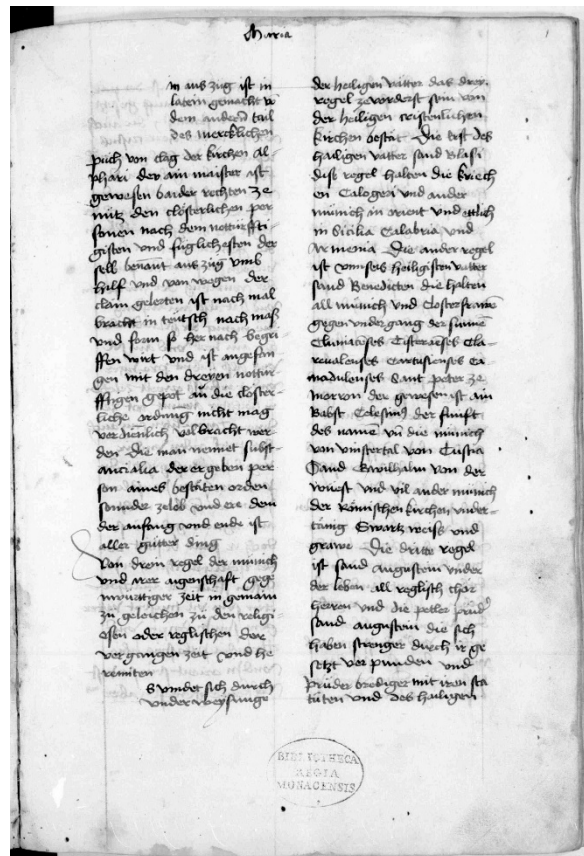 Maria
in aus zug ist in
latein gemacht vo
dem andern tail
des mercklichen
puch von clag der kirchen Al-
phari der ain maister ist
gewesen baider rechten ze
nutz den clösterlichen per
sonen nach dem notturffti-
gisten vnd fuglichesten der
selb benant aus zug vmb
hilf vnd von wegen der
clain gelerten ist nach mal
bracht in teutsch nach mass
vnd form so her nach begri
ffen wirt vnd ist angefan-
gen mit den dreyen nottur-
fftigen gepot an die closter-
liche ordnung nicht mag
verdienlich volbracht wer-
den die man nennet subst-
ancialia der ergeben per
son aines bestäten orden
sunder zelob vnd ere dem
der anfang vnd ende ist
aller gutter ding
Von drein regel der münich
vnd irer aigenschaft gege
nwürttiger zeit in gemain
zu geleichen zu den religi-
osen oder reglischen der
vergangen zeit vnd he
remiten
S vindet sich durch
vnderweysunge
der heiligen vätter das drei
regel zevorderst sein von
der heiligen cristenlichen
kirchen bestät Die erst des
hailigen vatter sand Basili
dise regel halten die kriech
en Calogeri vnd ander
münich in orient vnd ettlich
in Sicilia Calabria vnd
Armenia Die ander regel
ist vnnsers heiligisten vatter
sand Benedicten die halten
all münich vnd closterfrawen
gegen vndergang der sunnen
Cluniacenses Cistercienses Cla-
reualenses Cartusienses Ca
maldulenses Sant peter ze
moron der gewesen ist ain
Babst Celestinus der funft
des name vnd die münich
von vinstertal von Tuscia
Sand Bawilhalm von der
wuest vnd vil ander münich
der Römischen kirchen vnder-
tänig Swartz weiss vnd
graw Die dritte regel
ist sand Augustein vnder
der leben all reglisch chor
herren vnd die petler prüder
sand augustein die sich
haben strenger durch ir ge
setzt verpunden vnd
prüder prediger mit iren sta
tuten vnd des hailigen
BIBLIOTHECA
REGIA
MONACENSIS